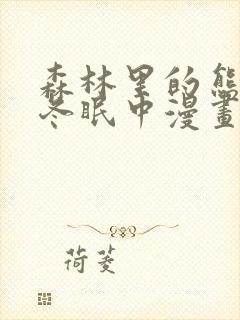 森林里的熊
冬眠中漫畫
荷菱